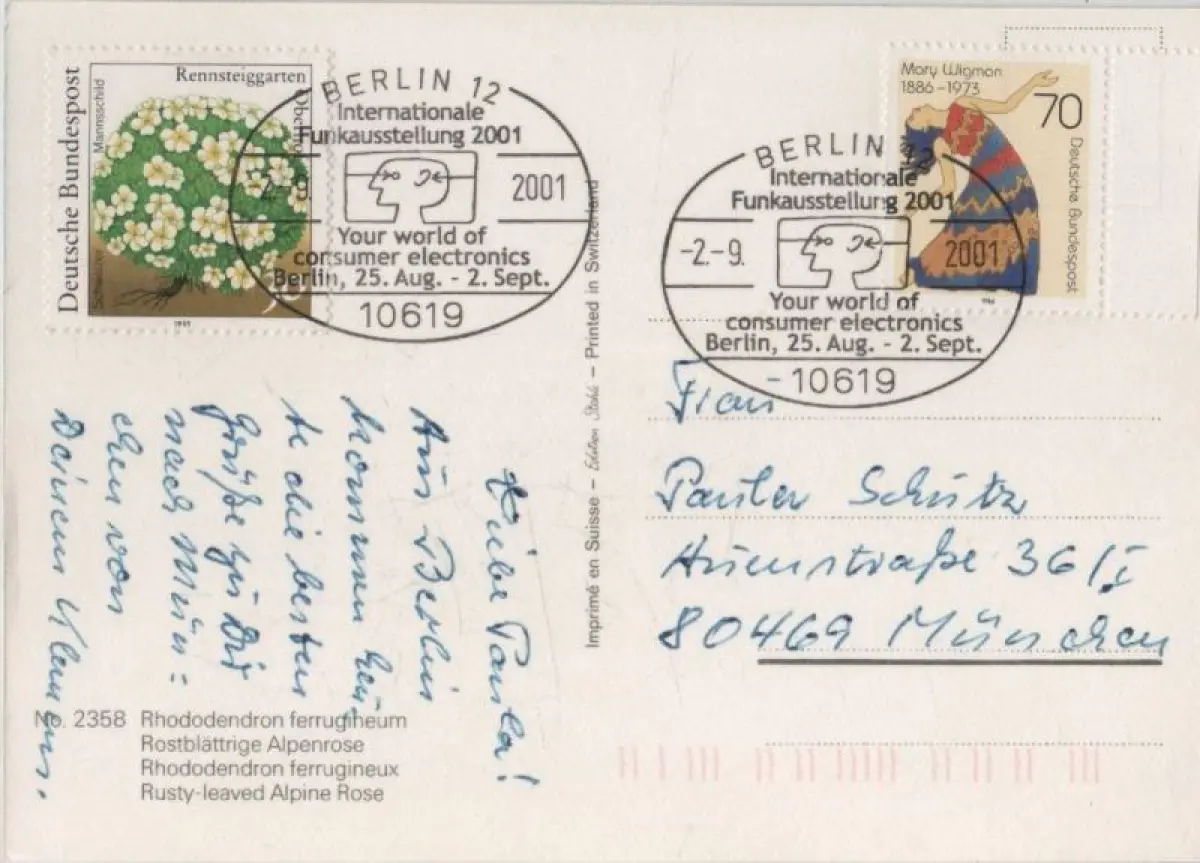 Deutsche Bundespost
Mannsschild
Rennsteiggarten
BERLIN 12
Internationale
Funkausstellung 2001
2.-9. 2001
Your world of
consumer electronics
Berlin, 25. Aug. - 2. Sept.
10619
Mary Wigman
1886-1973
70
Deutsche Bundespost
BERLIN 12
Internationale
Funkausstellung 2001
-2.-9. 2001
Your world of
consumer electronics
Berlin, 25. Aug. - 2. Sept.
-10619
Liebe Paula!
Aus Berlin
kommen heu-
te die besten
Grüße zu Dir
nach Mün=
chen von
Deinem Klemens.
Imprimé en Suisse – Edition Stahli – Printed in Switzerland
Frau
Paula Schütz
Auenstraße 36/I
80469 München
No. 2358 Rhododendron ferrugineum
Rostblättrige Alpenrose
Rhododendron ferrugineux
Rusty-leaved Alpine Rose